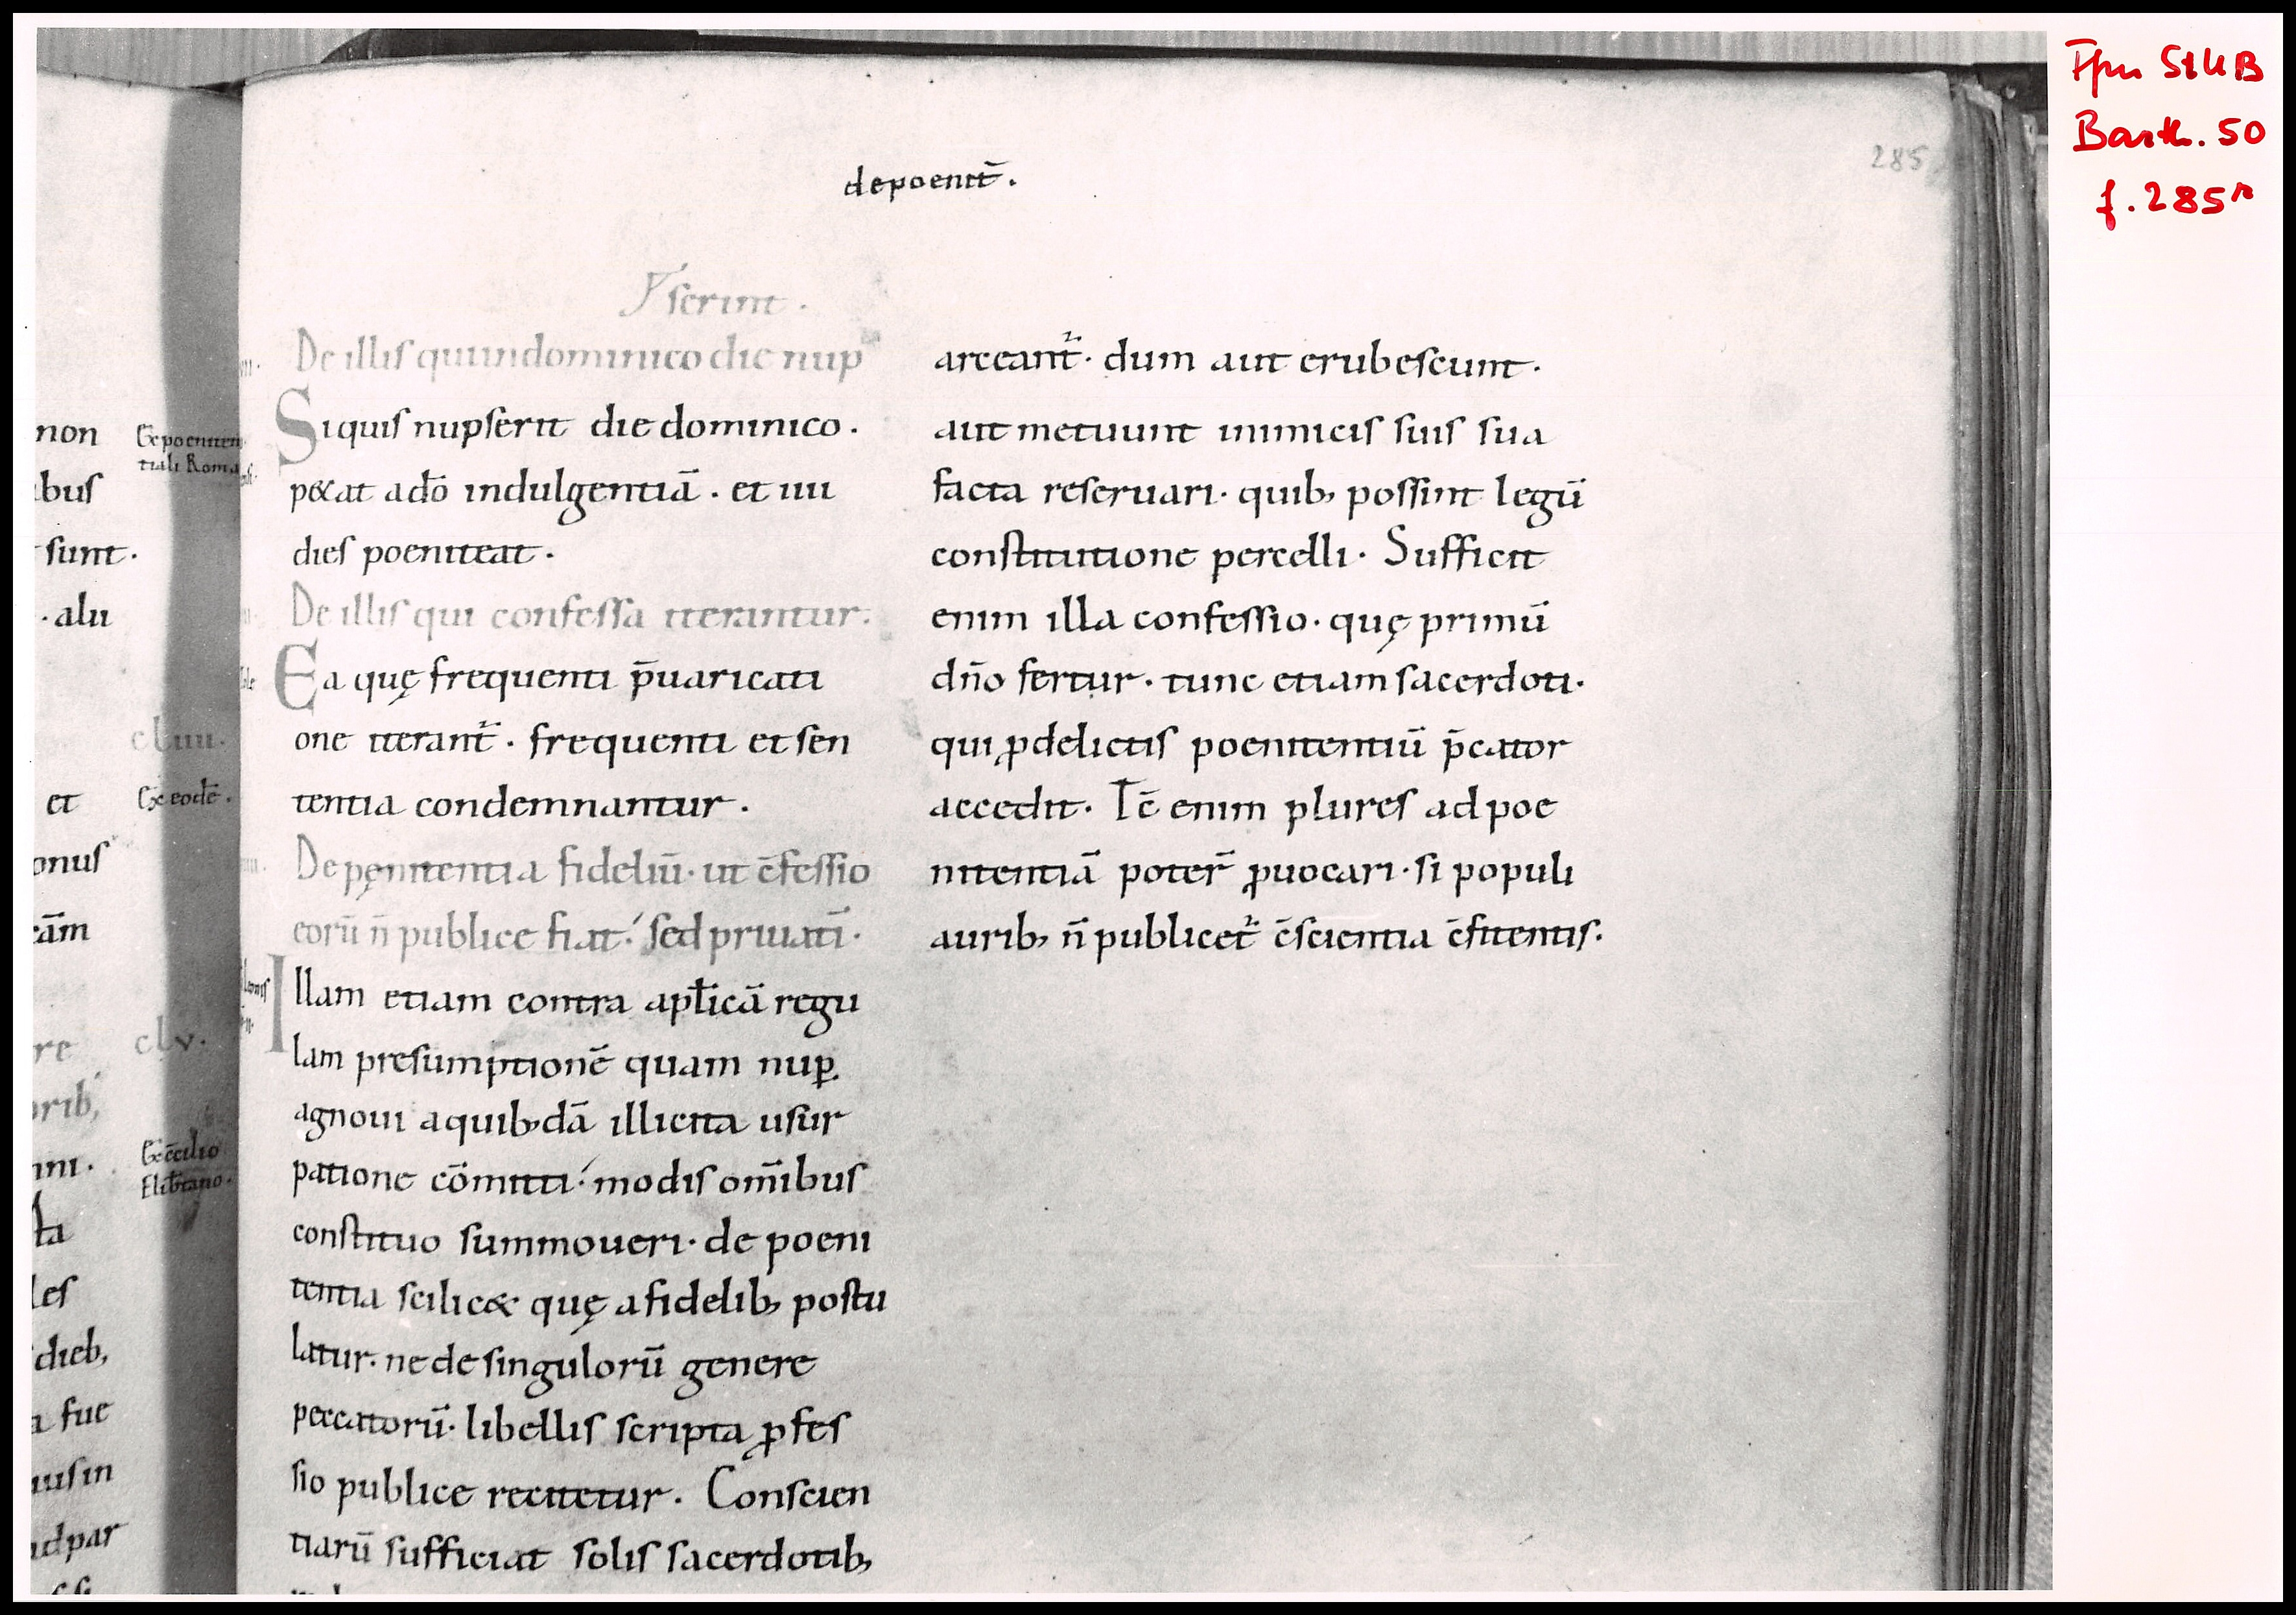 StUB
Barth. 50
f. 285r
285
depoenit̄.
serint.
De illis qui in dominico die nup
Siquis nupserit die dominico.
pe&at adō indulgentiā. et iiii
dies poeniteat.
De illis qui confessa iterantur.
Ea quę frequenti p̄uaricati
one iterant̄. frequenti et sen
tentia condemnantur.
De pęnitentia fideliū. ut c̄fessio
eorū n̄ publice fiat. sed priuatī.
Illam etiam contra aplicā regu
lam presumptionē quam nuꝑ
agnoui a quib;dā illicita usur
patione cōmitti. modis om̄ibus
constituo summoueri. de poeni
tentia scilic& quę a fidelib; postu
latur. ne de singulorū genere
peccatorū. libellis scripta ꝓfes
sio publice recitetur. Conscien
tiarū sufficiat solis sacerdotib;
arceant̄. dum aut erubescunt.
aut metuunt inimicis suis sua
facta reseruari. quib; possint legū
constitutione percelli. Sufficit
enim illa confessio. quę primū
dn̄o fertur. tunc etiam sacerdoti.
qui ꝓ delictis poenitentiū p̄cator
accedit. Tc̄ enim plures ad poe
nitentiā poter̄ ꝓuocari. si populi
aurib; n̄ publicet̄ c̄scientia c̄fitentis.
non
Ex poeniten
tiali Roma
bus
sunt.
alii
cliiii.
et
Ex eodē.
onus
cām
re
clv.
orib;
Ex c̄cilio
Elib̄tano.
ta
les
dieb;
a fue
us in
ad par